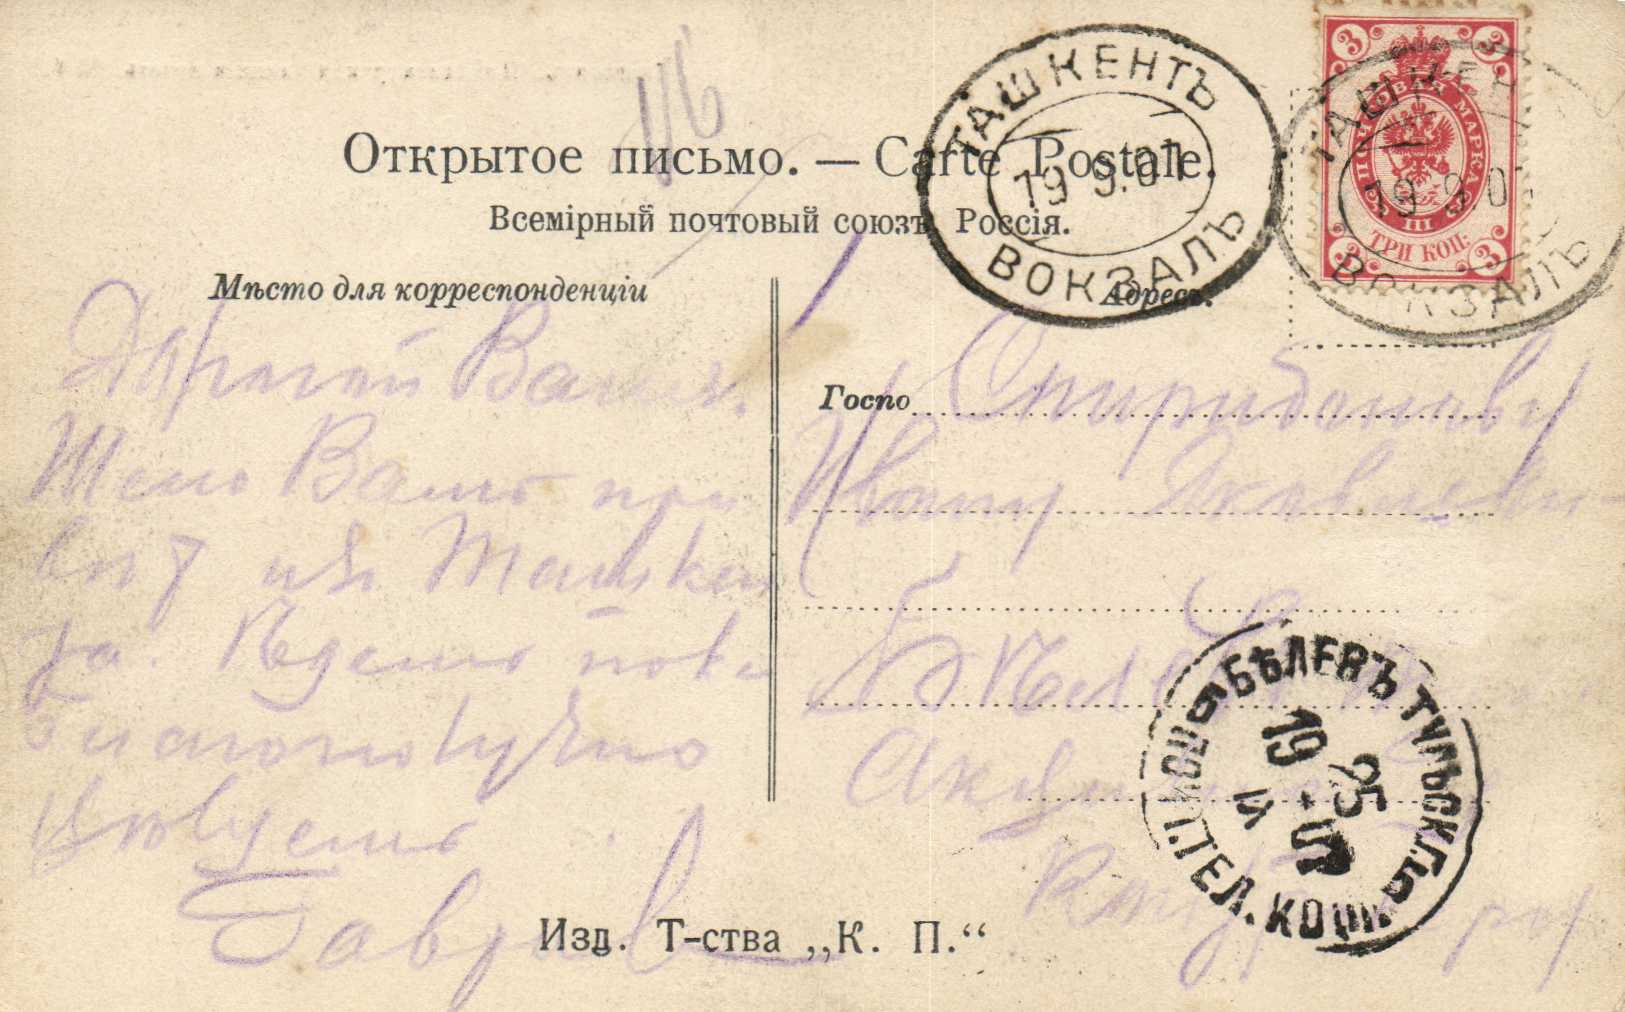 Открытое письмо. — Carte Postale.
Всемірный почтовый союзъ Россія.
ТАШКЕНТЪ
19 9.07
ВОКЗАЛЪ
3 3
ПОЧТОВАЯ МАРКА
ТРИ КОП.
3 3
ТАШКЕН
19 9.07
ВОКЗАЛЪ
Мѣсто для корреспонденціи
Дорогой Ваня.
Шлю Вамъ при
вѣт изъ Ташкен
та. Ѣдемъ пока
благополучно
Цѣлуемъ
Адресъ.
Госпо Спиридонову
Ивану Яковлеви-
Бѣлевъ
Акцизная
БѢЛЕВЪ ТУЛЬСК. Г.
19 25
IX 07
ПОЧТ. ТЕЛ. КОН.
Изд. Т-ства „К. П.“